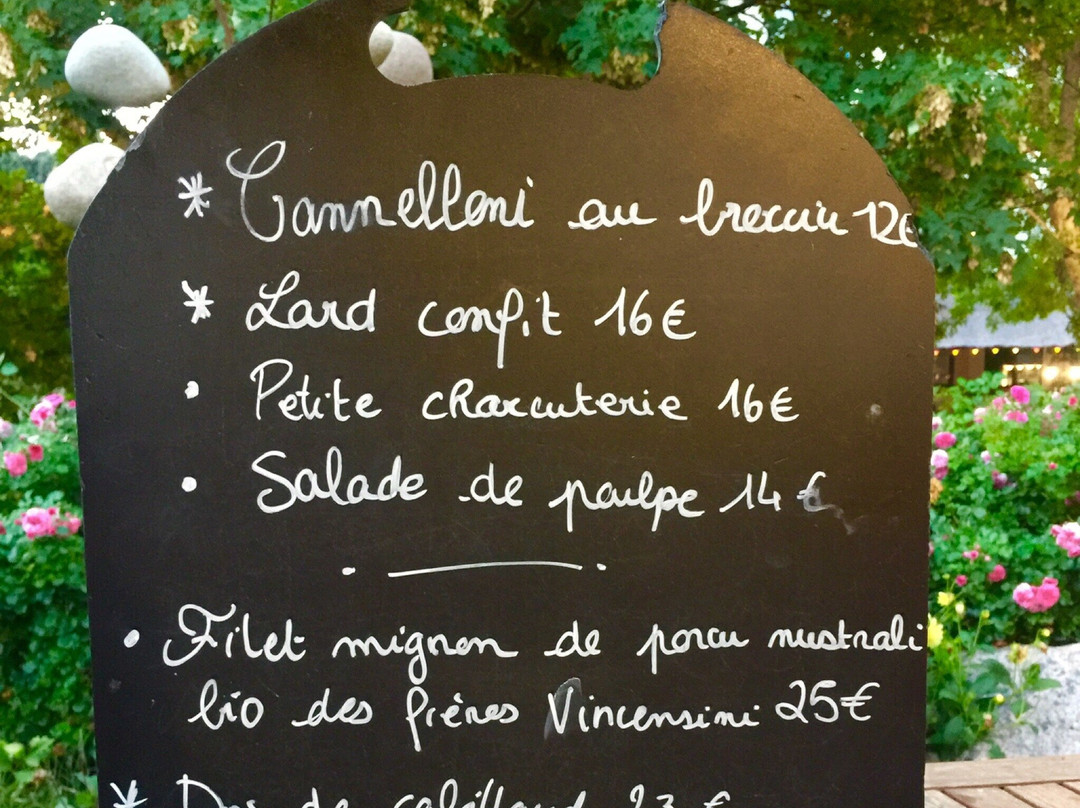 * Cannelloni au brocciu 12€
* Lard confit 16€
• Petite charcuterie 16€
• Salade de poulpe 14 €
• Filet mignon de porcu nustrali
bio des frères Vincensini 25€
* Dos de cabillaud 23 €